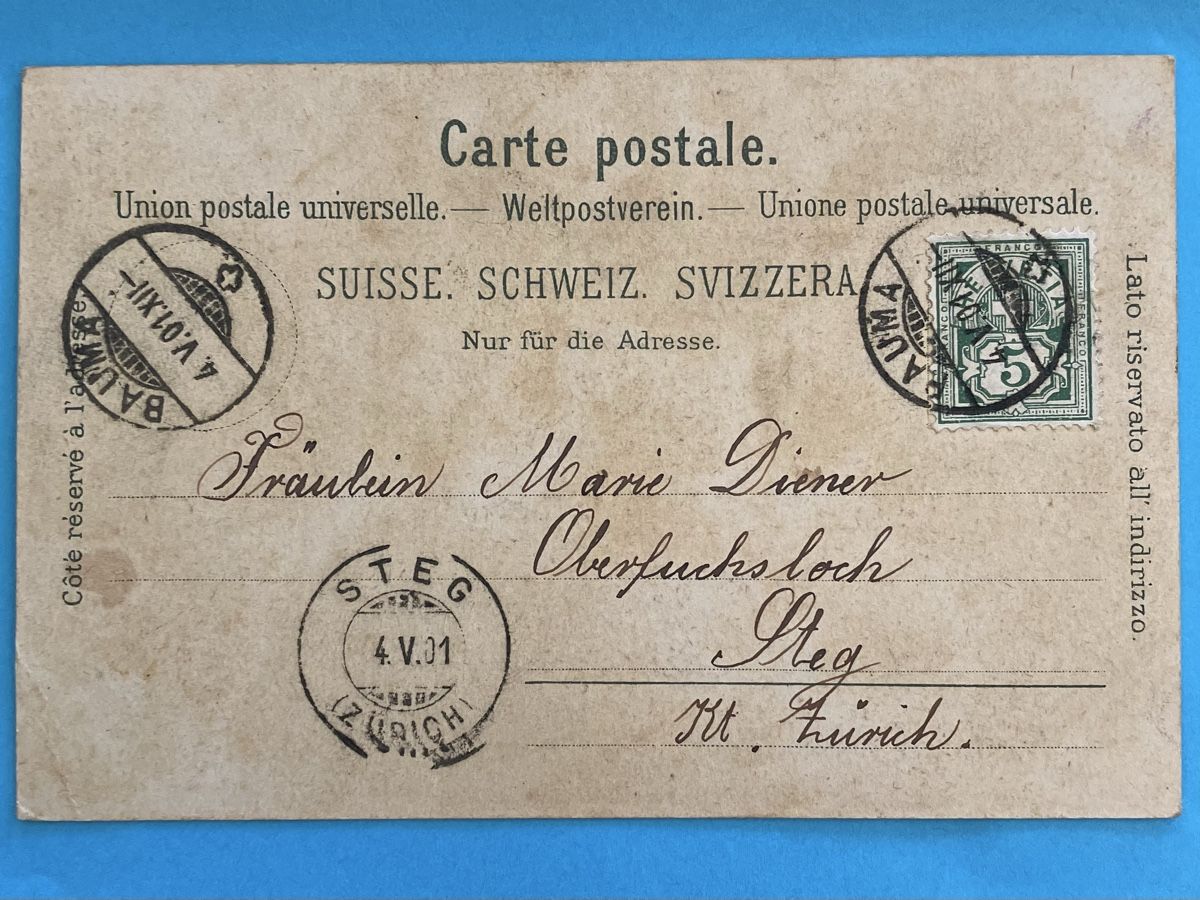 Carte postale.
Union postale universelle. — Weltpostverein. — Unione postale universale.
SUISSE. SCHWEIZ. SVIZZERA
Nur für die Adresse.
BAUMA
4.V.01.XII–
BAUMA
FRANCO
5
Côté réservé à l'adresse.
Lato riservato all' indirizzo.
Fräulein Marie Diener
Oberfuchsloch
Steg
Kt. Zürich.
STEG
4.V.01
(ZÜRICH)